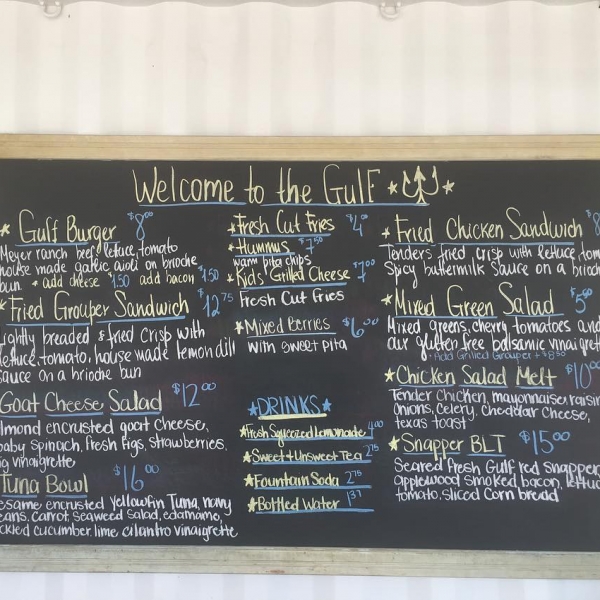 Welcome to the Gulf
Gulf Burger $8.00
Meyer ranch beef, lettuce, tomato
house made garlic aioli on brioche
bun * add cheese $1.50 add bacon $1.50
Fried Grouper Sandwich $12.75
lightly breaded & fried crisp with
lettuce, tomato, house made lemon dill
sauce on a brioche bun
Goat Cheese Salad $12.00
almond encrusted goat cheese,
baby spinach, fresh figs, strawberries,
fig vinaigrette
Tuna Bowl $16.00
sesame encrusted yellowfin Tuna, navy
beans, carrot, seaweed salad, edamame,
pickled cucumber, lime cilantro vinaigrette
Fresh Cut Fries $4.00
Hummus $7.50
warm pita chips
Kids' Grilled Cheese $7.00
Fresh Cut Fries
Mixed Berries $6.00
with sweet pita
DRINKS
Fresh Squeezed Lemonade 4.00
Sweet & Unsweet Tea 2.75
Fountain Soda 2.75
Bottled Water 1.37
Fried Chicken Sandwich $8
Tenders fried crisp with lettuce, tom
Spicy buttermilk sauce on a brioch
Mixed Green Salad $5.00
Mixed greens, cherry tomatoes and
our gluten free balsamic vinaigrett
* Add Grilled Grouper + $8.50
Chicken Salad Melt $10.00
Tender chicken, mayonnaise, raisin
onions, celery, cheddar cheese,
texas toast
Snapper BLT $15.00
Seared Fresh Gulf red snapper
applewood smoked bacon, lettuc
tomato, sliced corn bread